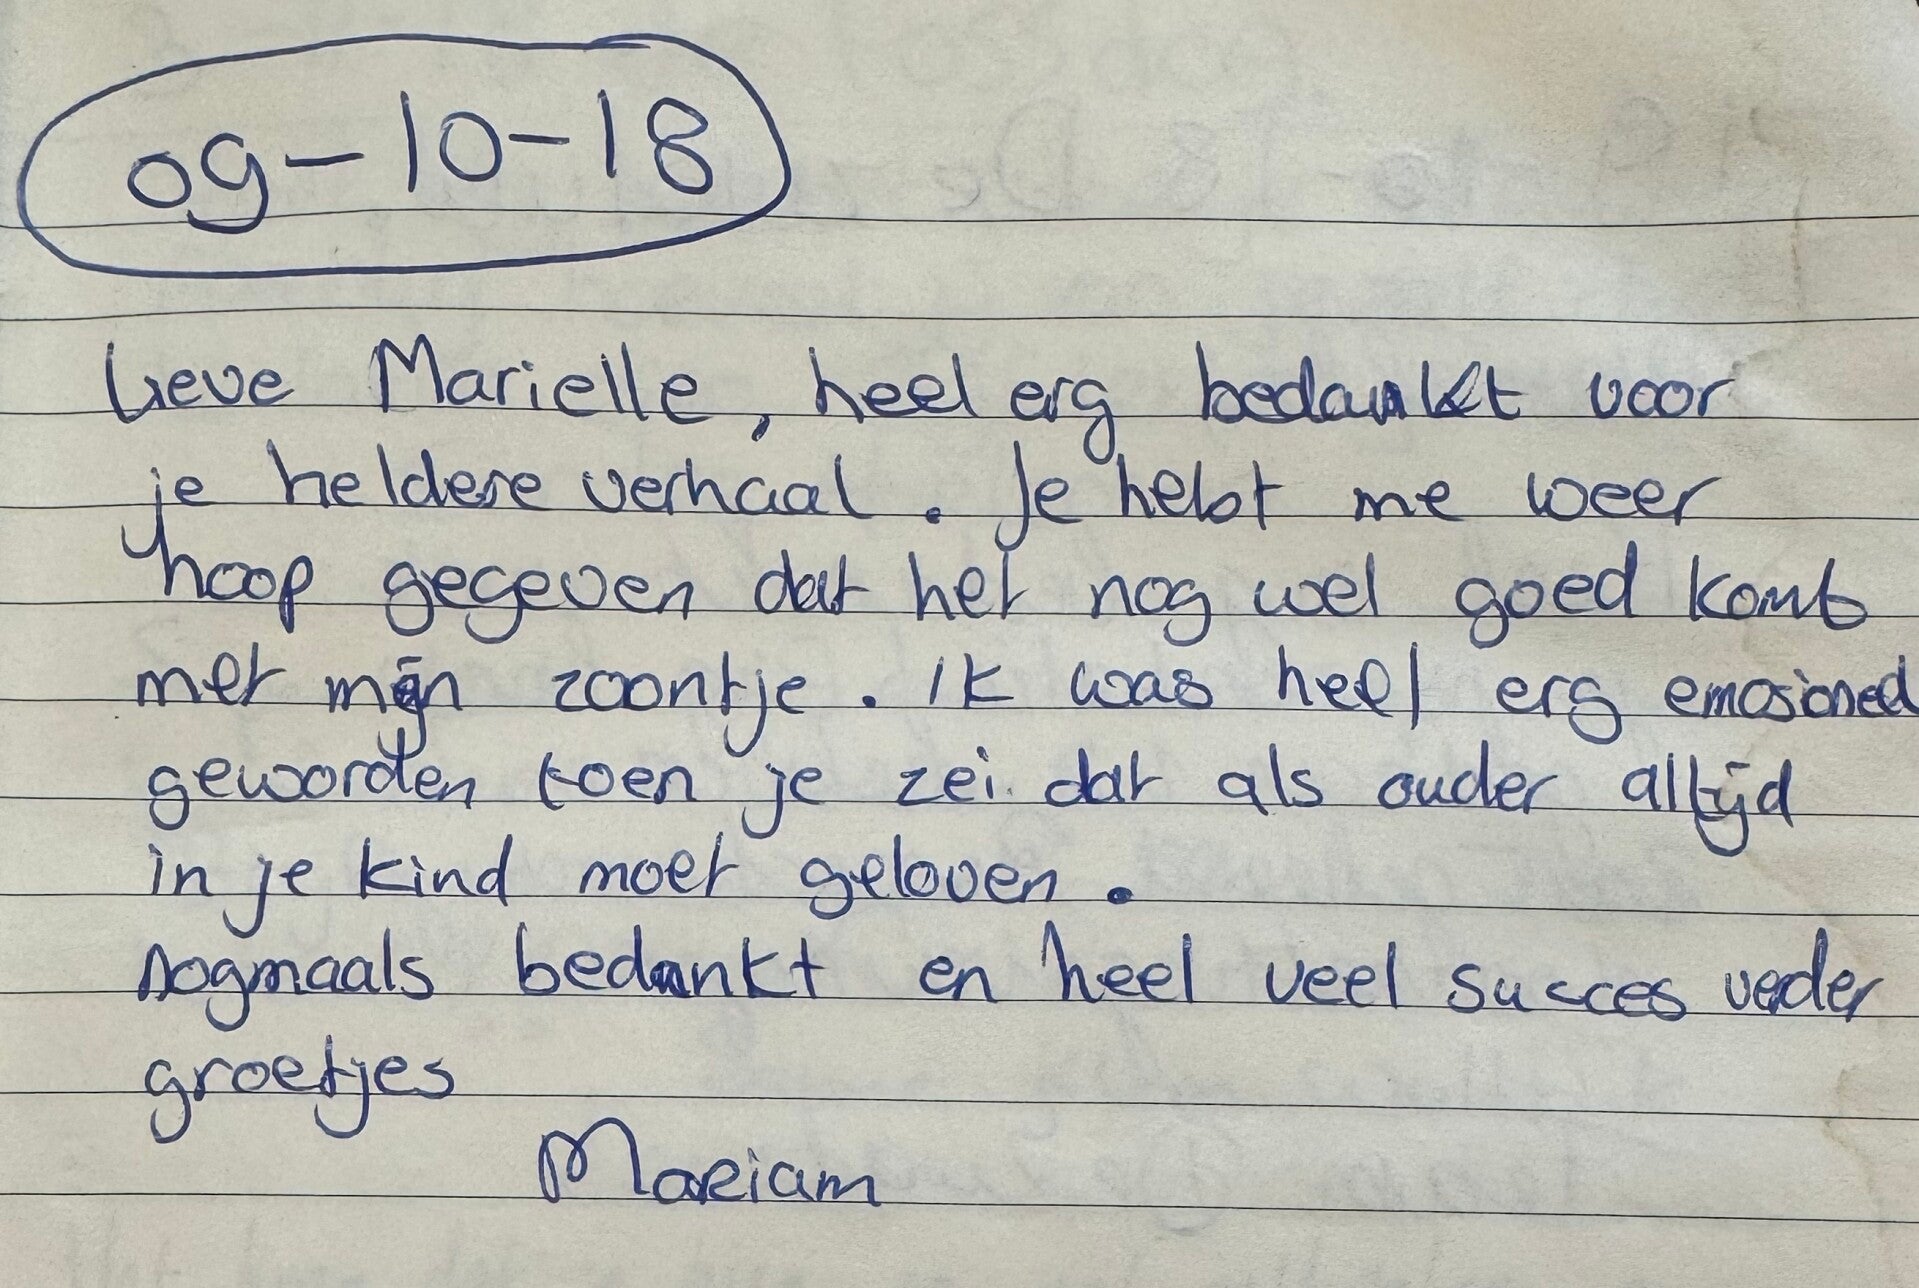 09-10-18
Lieve Marielle, heel erg bedankt voor
je heldere verhaal. Je hebt me weer
hoop gegeven dat het nog wel goed komt
met mijn zoontje. Ik was heel erg emosioneel
geworden toen je zei dat als ouder altijd
in je kind moet geloven.
nogmaals bedankt en heel veel succes verder
groetjes
Mariam